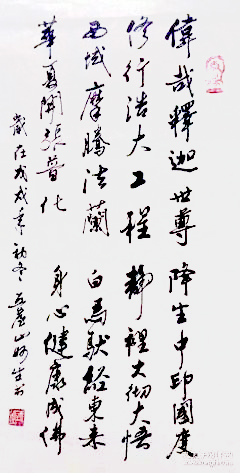 偉哉釋迦世尊 降生中印國度
修行浩大工程 靜裡大彻大悟
西域摩騰法蘭 白馬馱經東来
華夏開張普化 身心健康成佛
歲在戊戌年初冬五臺山妙生書